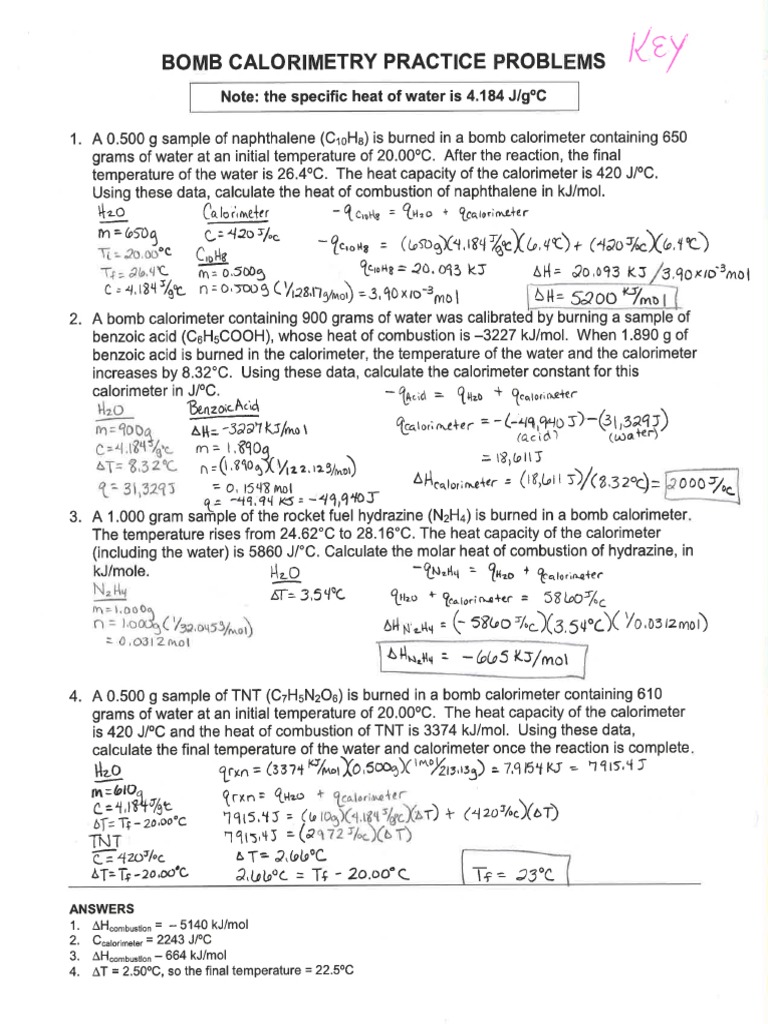 KEY
BOMB CALORIMETRY PRACTICE PROBLEMS
Note: the specific heat of water is 4.184 J/gºC
1. A 0.500 g sample of naphthalene (C₁₀H₈) is burned in a bomb calorimeter containing 650
grams of water at an initial temperature of 20.00ºC. After the reaction, the final
temperature of the water is 26.4ºC. The heat capacity of the calorimeter is 420 J/ºC.
Using these data, calculate the heat of combustion of naphthalene in kJ/mol.
H₂O
m = 650g
Ti = 20.00 °C
Tf = 26.4°C
C = 4.184 J/g°C
Calorimeter
C = 420 J/°C
C₁₀H₈
m = 0.500g
n = 0.500g (1/128.17g/mol) = 3.90x10⁻³ mol
-q C₁₀H₈ = q H₂O + q calorimeter
-q C₁₀H₈ = (650g)(4.184 J/g°C)(6.4°C) + (420 J/°C)(6.4°C)
q C₁₀H₈ = 20.093 KJ
ΔH = 20.093 KJ / 3.90x10⁻³ mol
ΔH = 5200 KJ/mol
2. A bomb calorimeter containing 900 grams of water was calibrated by burning a sample of
benzoic acid (C₆H₅COOH), whose heat of combustion is –3227 kJ/mol. When 1.890 g of
benzoic acid is burned in the calorimeter, the temperature of the water and the calorimeter
increases by 8.32°C. Using these data, calculate the calorimeter constant for this
calorimeter in J/ºC.
H₂O
m = 900g
C = 4.184 J/g°C
ΔT = 8.32°C
q = 31,329J
Benzoic Acid
ΔH = -3227 KJ/mol
m = 1.890g
n = (1.890g)(1/122.123/mol)
= 0.1548 mol
q = -49.94 KJ = -49,940 J
- q Acid = q H₂O + q calorimeter
q calorimeter = -(-49,940 J) - (31,329J)
(acid) (water)
= 18,611J
ΔH calorimeter = (18,611 J)/(8.32°C) = 2000 J/°C
3. A 1.000 gram sample of the rocket fuel hydrazine (N₂H₄) is burned in a bomb calorimeter.
The temperature rises from 24.62°C to 28.16°C. The heat capacity of the calorimeter
(including the water) is 5860 J/°C. Calculate the molar heat of combustion of hydrazine, in
kJ/mole.
N₂H₄
m = 1.000g
n = 1.000g (1/32.0453/mol)
= 0.0312 mol
H₂O
ΔT = 3.54°C
-q N₂H₄ = q H₂O + q calorimeter
q H₂O + q calorimeter = 5860 J/°C
ΔH N₂H₄ = (-5860 J/°C)(3.54°C)(1/0.0312 mol)
ΔH N₂H₄ = -665 KJ/mol
4. A 0.500 g sample of TNT (C₇H₅N₂O₆) is burned in a bomb calorimeter containing 610
grams of water at an initial temperature of 20.00ºC. The heat capacity of the calorimeter
is 420 J/ºC and the heat of combustion of TNT is 3374 kJ/mol. Using these data,
calculate the final temperature of the water and calorimeter once the reaction is complete.
H₂O
m = 610g
C = 4.184 J/g°C
ΔT = Tf - 20.00°C
TNT
C = 420 J/°C
ΔT = Tf - 20.00°C
q rxn = (3374 KJ/mol)(0.500g)(1mol/213.13g) = 7.9154 KJ = 7915.4 J
q rxn = q H₂O + q calorimeter
7915.4 J = (610g)(4.184 J/g°C)(ΔT) + (420 J/°C)(ΔT)
7915.4J = (2972 J/°C)(ΔT)
ΔT = 2.66°C
2.66°C = Tf - 20.00°C
Tf = 23°C
ANSWERS
1. ΔHcombustion = – 5140 kJ/mol
2. Ccalorimeter = 2243 J/ºC
3. ΔHcombustion – 664 kJ/mol
4. ΔT = 2.50ºC, so the final temperature = 22.5ºC